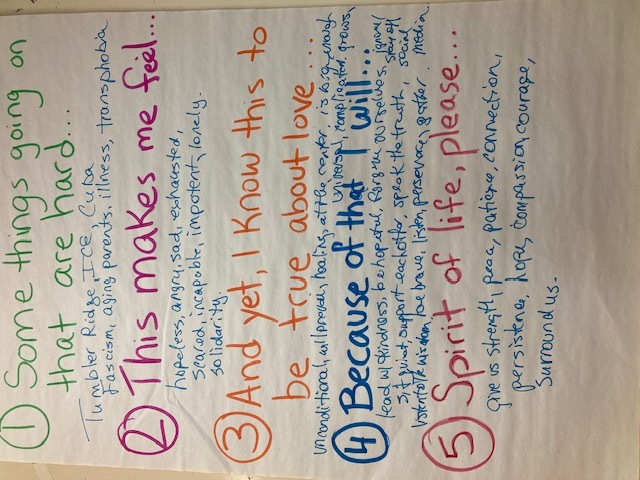 ① Some things going on
that are hard...
Tumbler Ridge, ICE, Cuba
Fascism, aging parents, illness, transphobia
② This makes me feel...
hopeless, angry, sad, exhausted,
scared, incapable, impotent, lonely.
solidarity.
③ And yet, I know this to
be true about love....
unconditional, will prevail, healing, at the center, is big enough
universal, complicated, grows,
④ Because of that I will...
lead w/ kindness, be hopeful, forgive ourselves, ignore/
sit quiet, support each other, speak the truth, stay off social media
listen to the wisdom, be brave, listen, persevere, gather.
⑤ Spirit of life, please...
give us strength, peace, patience, connection,
persistence, hope, compassion, courage,
surround us.